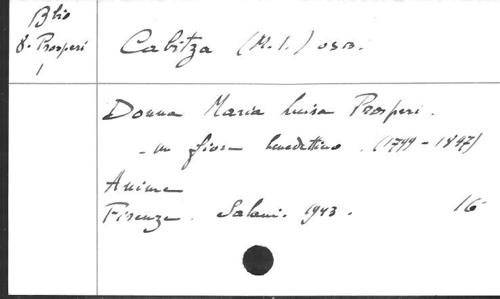 Blio
8. Prosperi
1
Cabitza (M. I.) OSB.
Donna Maria Luisa Prosperi.
- un fiore benedettino. (1799 - 1847)
Anime
Firenze. Salani. 1943. 16